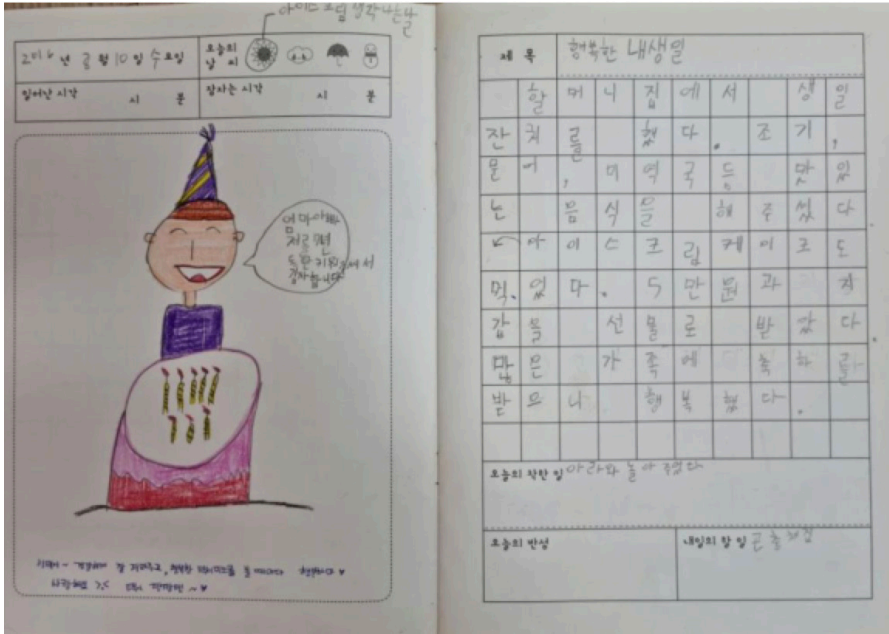 아이스크림 생각나는날
2016년 2월 10일 수요일
오늘의 날씨
일어난 시각 시 분
잠자는 시각 시 분
엄마아빠
저를 9년
동안 키워주셔서
감사합니다
제목 행복한 내생일
할머니집에서 생일
잔치를 했다. 조기,
문어, 미역국등 맛있
는 음식을 해주셨다
아이스크림케이크도
먹었다. 5만원과 지
갑을 선물로 받았다
많은 가족에 축하를
받으니 행복했다.
오늘의 착한 일 아라와 놀아주었다
오늘의 반성
내일의 할 일